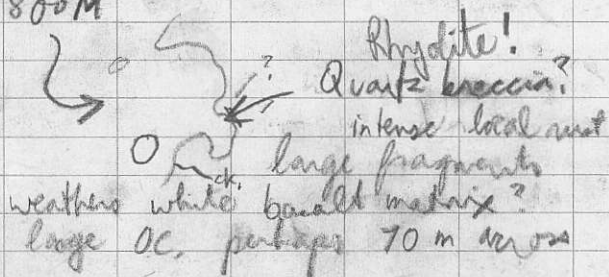 800M
Rhyolite!
?
Quartz breccia?
?
intense local rust
large fragments
ck.
weathers white basalt matrix?
large OC, perhaps 70 m across